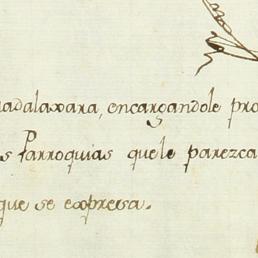 adalaxara, encargandole pro
s Parroquias quele parezca
que se expresa.